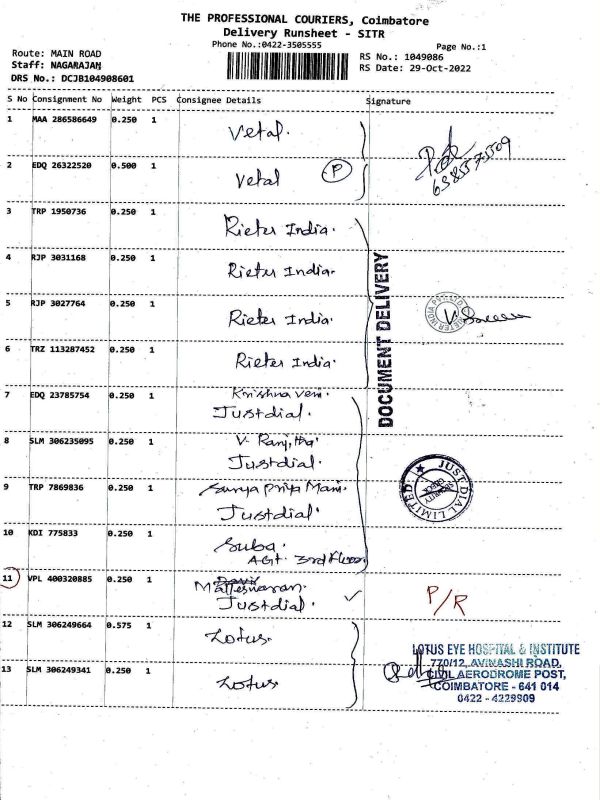 THE PROFESSIONAL COURIERS, Coimbatore
Delivery Runsheet - SITR
Phone No.:0422-3505555
Page No.:1
Route: MAIN ROAD
Staff: NAGARAJAN
DRS No.: DCJB104908601
RS No.: 1049086
RS Date: 29-Oct-2022
S No Consignment No Weight PCS Consignee Details Signature
1 MAA 286586649 0.250 1 Vetal.
2 EDQ 26322520 0.500 1 Vetal P
6385575509
3 TRP 1950736 0.250 1 Rieter India.
4 RJP 3031168 0.250 1 Rieter India.
5 RJP 3027764 0.250 1 Rieter India.
6 TRZ 113287452 0.250 1 Rieter India.
DOCUMENT DELIVERY
RIETER INDIA PVT. LTD
7 EDQ 23785754 0.250 1 Krishna veni
Justdial.
8 SLM 306235095 0.250 1 V. Ranjitha
Justdial.
9 TRP 7869836 0.250 1 Surya Priya Mani.
Justdial.
JUST DIAL LIMITED
SECURITY CHECK
10 KDI 775833 0.250 1 Suba.
AGT. 3rd floor
11 VPL 400320885 0.250 1 Matheswaran.
Justdial. ✓ P/R
12 SLM 306249664 0.575 1 Lotus.
13 SLM 306249341 0.250 1 Lotus
LOTUS EYE HOSPITAL & INSTITUTE
770/12, AVINASHI ROAD,
CIVIL AERODROME POST,
COIMBATORE - 641 014
0422 - 4229909